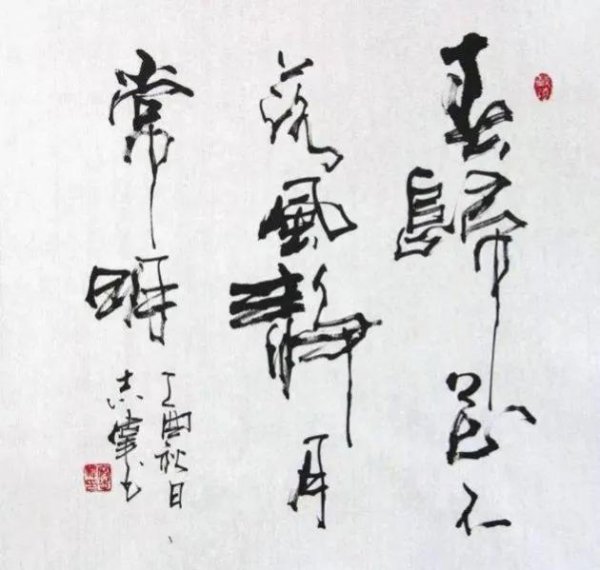 春歸花不
落風靜月
常明
丁酉秋日
志